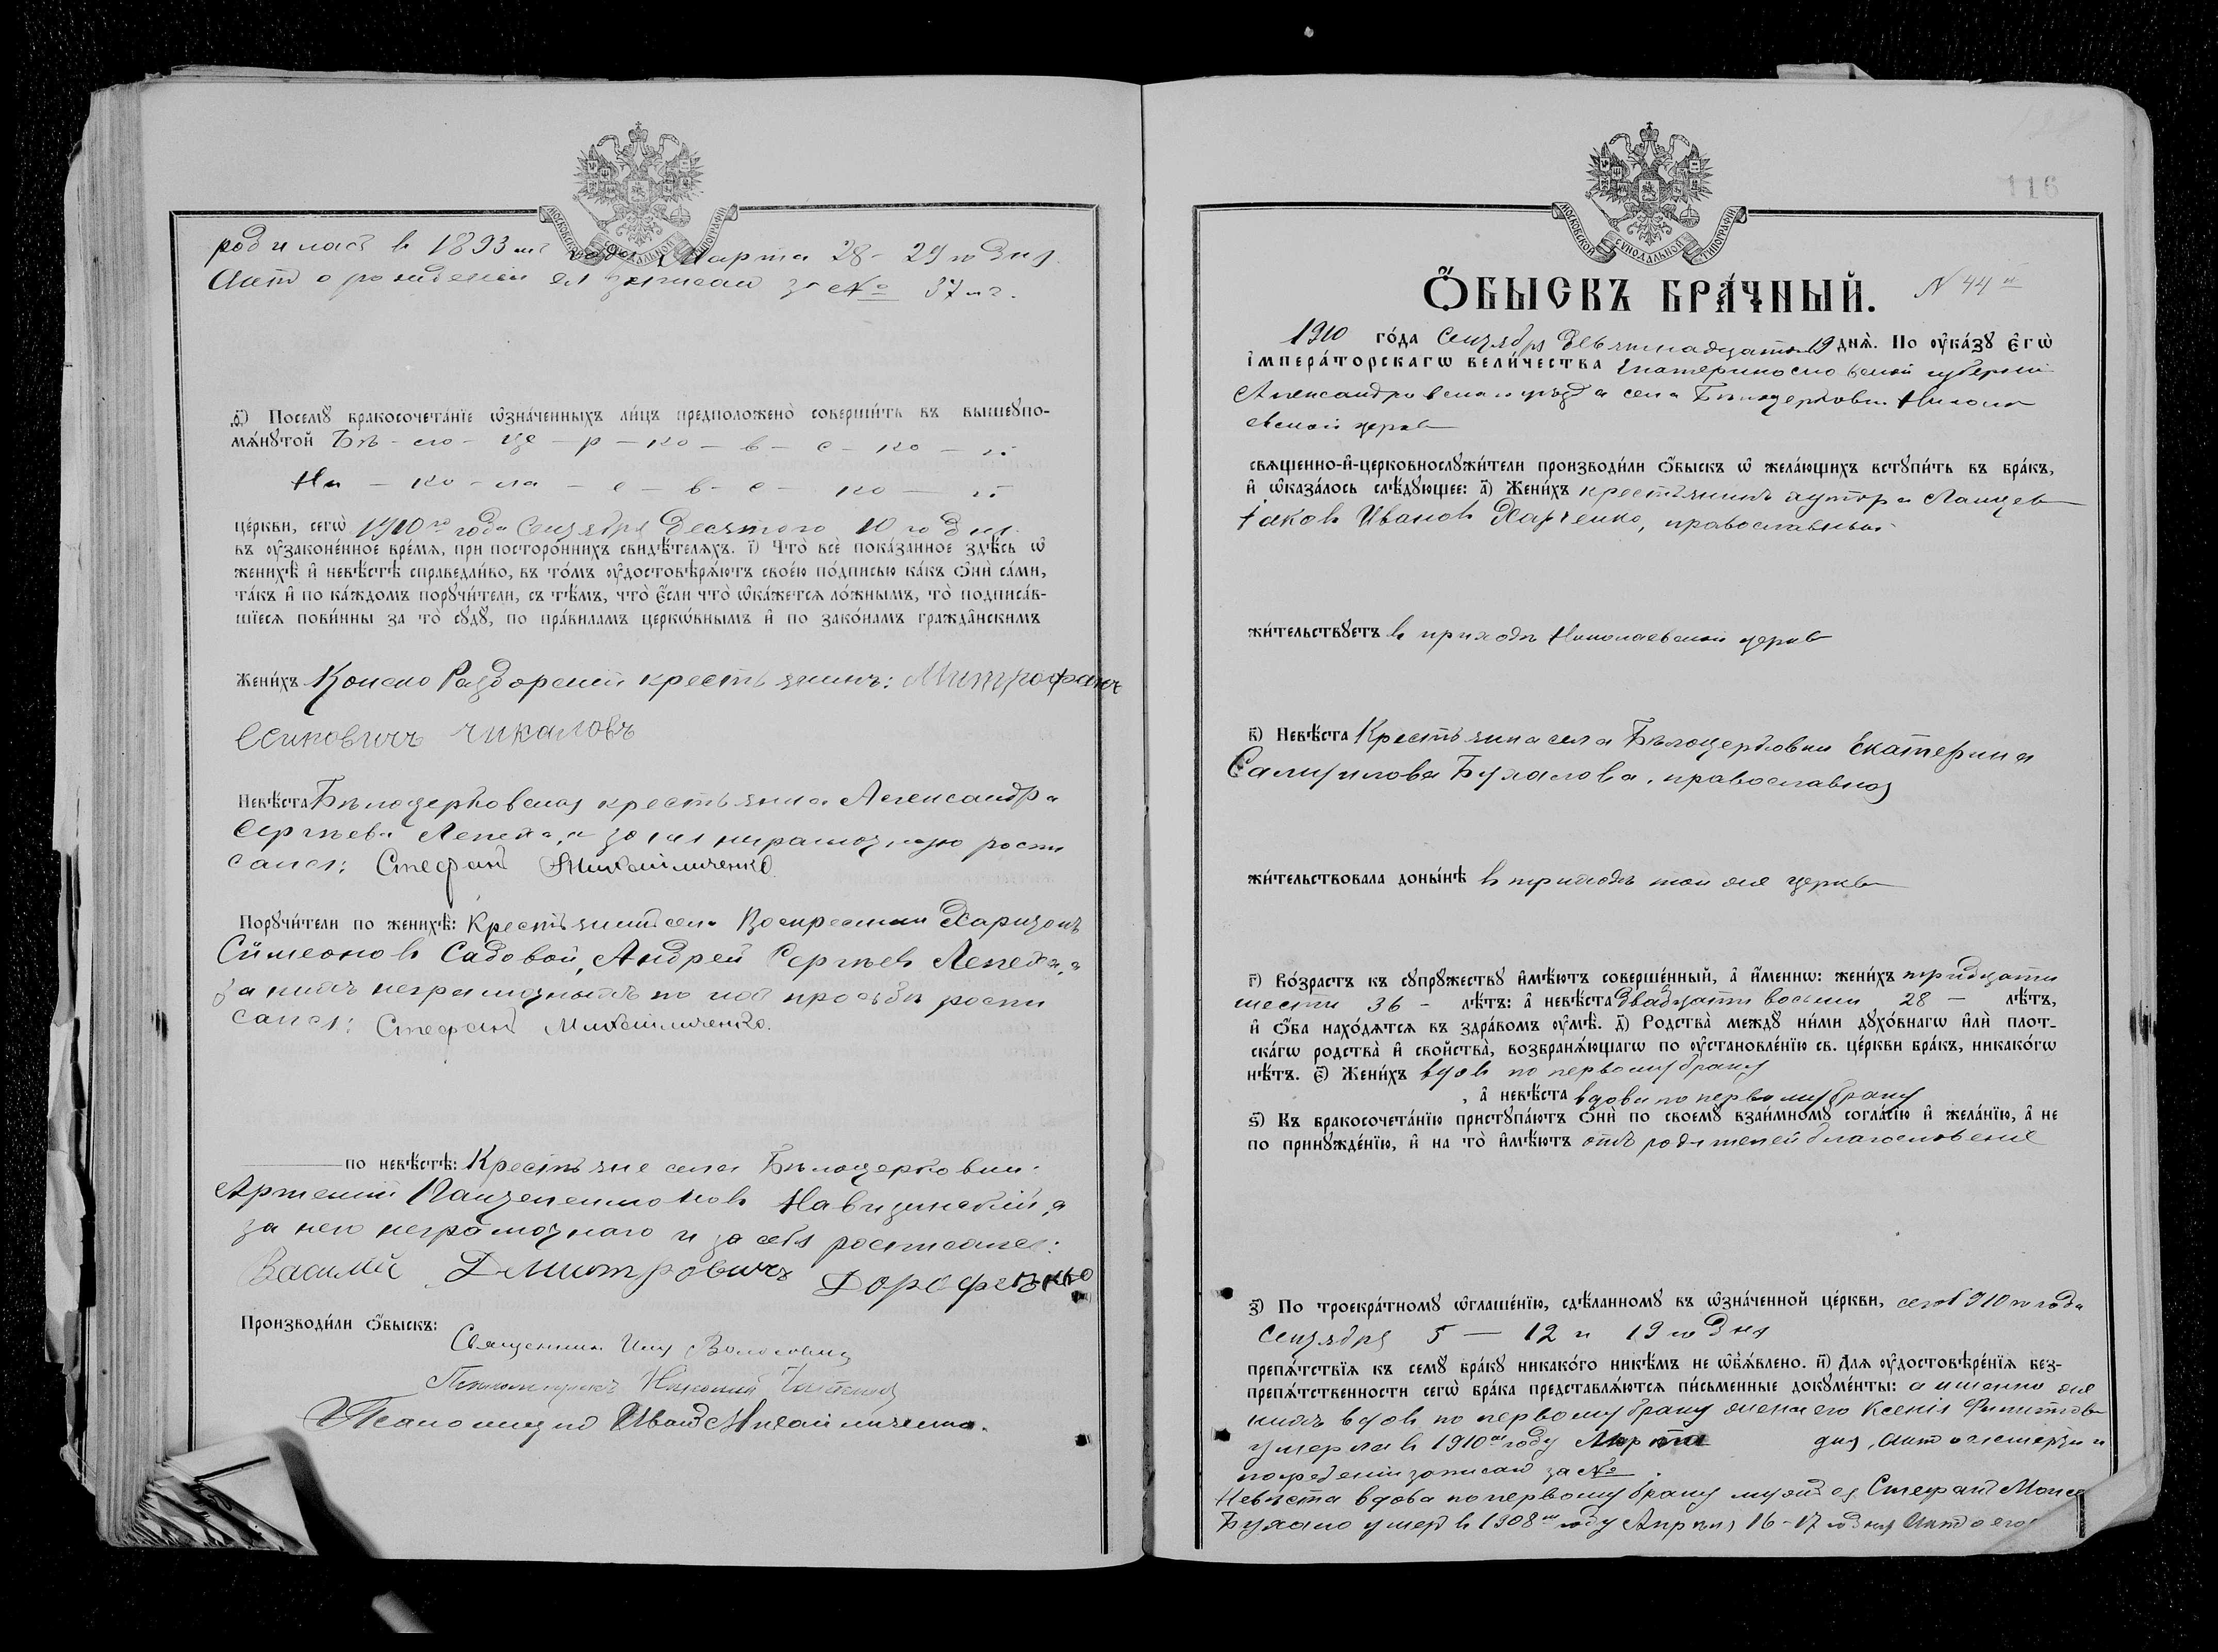 МОСКОВСКОЙ СѴНОДАЛЬНОЙ ТИПОГРАФІИ
родилась в 1893 мъ года Марта 28 - 29 го дня
Актъ о рожденіи ея записан за № 37 мъ.
ѳ҃) Посемꙋ̀ бракосочета́нїе ѡ҆зна́ченныхъ ли́цъ предположено̀ соверши́ть въ вышеупо-
мѧ́нꙋтой Бѣ - ло - це - р - ко - в - с - ко - й
Ни - ко - ла - е - в - с - ко - й
це́ркви, сегѡ̀ 1910 го года Сентября десятого 10 го дня
въ ᲂу҆зако́ненное вре́мѧ, при посторо́ннихъ свидѣ́телѧхъ. і҃) Что̀ всѐ пока́занное здѣ́сь ѡ҆
женихѣ̀ и҆ невѣ́стѣ справедли́во, въ то́мъ ᲂу҆достовѣрѧ́ютъ свое́ю по́дписью ка́къ ѻ҆нѝ са́ми,
та́къ и҆ по ка́ждомъ порꙋчи́тели, съ тѣ́мъ, что̀ є҆́сли что̀ ѡ҆ка́жетсѧ ло́жнымъ, то̀ подписа́в-
шїесѧ пови́нны за то̀ сꙋдꙋ̀, по пра́виламъ церкѡ́внымъ и҆ по зако́намъ гражда́нскимъ
Жени́хъ Конско Раздорскій крестьянинъ: Митрофанъ
Есиповичъ Чикаловъ
Невѣ́ста Бѣлоцерковская крестьянка Александра
Сергѣева Лепеха, а за нея неграмотную роспи
сался: Стефанъ Михайличенко
Порꙋчи́тели по женихѣ̀: Крестьянинъ села Воскресенки Харитонъ
Симеоновъ Садовой, Андрей Сергѣевъ Лепеха, а
за нихъ неграмотныхъ по ихъ просьбѣ роспи
сался: Стефанъ Михайличенко.
по невѣ́стѣ: Крестьяне села Бѣлоцерковки:
Артемій Пантелеимоновъ, а
за него неграмотнаго и за себя росписался:
Василій Дмитровичъ Дорофеенко
Производи́ли ѻ҆́быскъ:
Священникъ
Псаломщикъ
Псаломщикъ Иванъ Михайличенко.
116
МОСКОВСКОЙ СѴНОДАЛЬНОЙ ТИПОГРАФІИ
Ѻ҆́БЫСКЪ БРА́ЧНЫЙ. N 44 й
1910 го́да Сентября девятнадцатого 19 днѧ̀. По ᲂу҆ка́зꙋ Є҆гѡ̀
І҆мпера́торскагѡ вели́чества Екатеринославской губерніи
Александровскаго уѣзда села Бѣлоцерковки Никола
евской церкви
свѧще́нно-и҆-церковнослꙋжи́тели производи́ли ѻ҆́быскъ ѡ҆ жела́ющихъ встꙋпи́ть въ бра́къ,
и҆ ѡ҆каза́лось слѣ́дꙋющее: а҃) Жени́хъ крестьянинъ хутора Ланцев
Іаковъ Ивановъ Харченко, православный
жи́тельствꙋетъ в приходѣ Николаевской церкви
в҃) Невѣ́ста Крестьянка села Бѣлоцерковки Екатерина
Самуилова Бухалова, православная
жи́тельствовала доны́нѣ в приходѣ той же церкви
г҃) Во́зрастъ къ сꙋпрꙋ́жествꙋ и҆мѣ́ютъ соверше́нный, а҆ и҆́меннѡ: жени́хъ тридцати
шести 36 - лѣ́тъ: а҆ невѣ́ста двадцати восьми 28 - лѣ́тъ,
и҆ ѻ҆́ба нахо́дѧтсѧ въ здра́вомъ ᲂу҆мѣ̀. д҃) Родства̀ междꙋ̀ ни́ми дꙋхо́внагѡ и҆лѝ плот-
ска́гѡ родства̀ и҆ сво́йства, возбранѧ́ющагѡ по ᲂу҆становле́нїю св. це́ркви бра́къ, никако́гѡ
нѣ́тъ. є҃) Жени́хъ вдовъ по первому браку
, а҆ невѣ́ста вдова по первому браку
ѕ҃) Къ бракосочета́нїю пристꙋпа́ютъ ѻ҆нѝ по своемꙋ̀ взаи́мномꙋ согла́сїю и҆ жела́нїю, а҆ не
по принꙋжде́нїю, и҆ на то̀ и҆мѣ́ютъ отъ родителей благословеніе
з҃) По троекра́тномꙋ ѡ҆глаше́нїю, сдѣ́ланномꙋ въ ѡ҆зна́ченной це́ркви, сего 1910 го года
Сентября 5 — 12 и 19 го дня
препѧ́тствїѧ къ семꙋ̀ бра́кꙋ никако́го никѣ́мъ не ѡ҆бъѧ́влено. и҃) Длѧ ᲂу҆достовѣре́нїѧ без-
препѧ́тственности сегѡ̀ бра́ка представлѧ́ютсѧ пи́сьменные докꙋме́нты: а именно же
нихъ вдовъ по первому браку жена его Ксенія Филиппова
умерла в 1910 м году Марта дня, Актъ о смерти и
погребеніи записанъ за №.
Невѣста вдова по первому браку мужъ ея Стефанъ Моисе
Бухало умеръ в 1908 м году Апрѣля 16 - 17 го дня Актъ о его